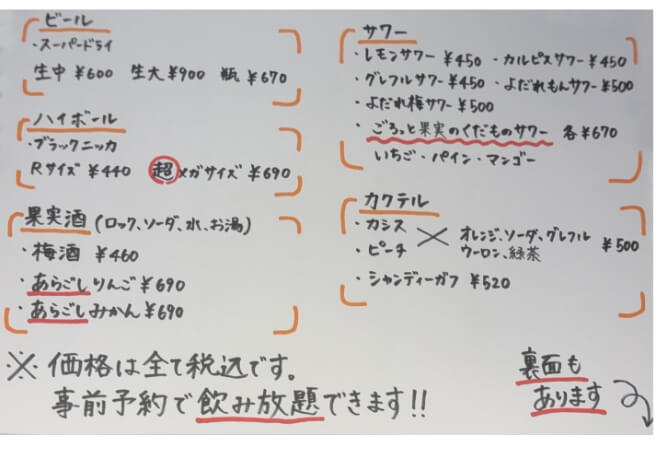 ビール
・スーパードライ
生中 ¥600 生大 ¥900 瓶 ¥670
ハイボール
・ブラックニッカ
Rサイズ ¥440 超メガサイズ ¥690
果実酒(ロック、ソーダ、水、お湯)
・梅酒 ¥460
・あらごしりんご ¥690
・あらごしみかん ¥690
サワー
・レモンサワー ¥450 ・カルピスサワー ¥450
・グレフルサワー ¥450 ・よだれもんサワー ¥500
・よだれ梅サワー ¥500
・ごろっと果実のくだものサワー 各¥670
いちご・パイン・マンゴー
カクテル
・カシス
・ピーチ
×
オレンジ、ソーダ、グレフル
ウーロン、緑茶
¥500
・シャンディーガフ ¥520
※価格は全て税込です。
事前予約で飲み放題できます!!
裏面も
あります